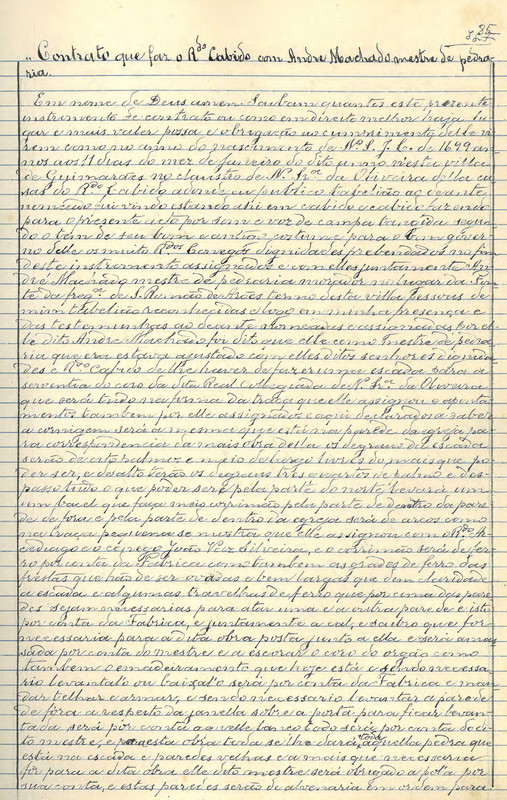 85
„ Contrato que faz o R.do Cabido com Andre Machado mestre de pedra-
ria.
Em nome de Deus amen Saibam quantos este prezente
instrumento de contrato ou como em direito melhor haja lu-
gar e mais valer possa e obrigação ao cumprimento delle vi-
rem como no anno do nascimento de N.º S. J. C. de 1699 an-
nos aos 11 dias do mez de Janeiro do dito anno nesta villa
de Guimarães no claustro de N.ª Snr.ª da Oliveira della ca-
sa do R.do Cabido adonde eu publico tabelião ao deante
nomeado fui vindo estando ahi em cabido e cabido fazendo
para o presente acto por som e voz de campa tangida segun-
do o tem de seu bom e antigo costume para o bom gover-
no delle os muito R.dos Conegos dignidades prebendados no fim
deste instrumento assignados e com elles juntamente An-
dre Machado mestre de pedraria morador no lugar da Fon-
te da freg.ª de S. Romão de Arões termo desta villa pessoas de
mim tabelião reconhecidas e logo em minha presença e
das testemunhas ao deante nomeadas e assignadas por el-
le dito Andre Machado foi dito que elle como mestre de pedra-
ria que era estava ajustado com elles ditos senhores dignida-
des e R.do Cabido de lhe haver de fazer uma escada para a
serventia do coro da dita Real Collegiada de N.ª Snr.ª da Oliveira
que será tudo na forma da traça que elle assignou e aponta-
mentos tambem por elle assignados e aqui declarados a saber
a cornigem será a mesma que está na parede da egreja pa-
ra correspondencia da mais obra della os degraus da escada
serão de oito palmos e meio de largo livres do mais que po-
der ser, e de alto terão os degraus tres quartos de palmo e d'es-
passo tudo o que poder ser e pela parte do norte levará um
um bocel que faça meio corrimão pela parte de dentro da pare-
de de fora e pela parte de dentro da egreja será de arcos como
na traça pequena se mostra que elle assignou com R.do Ar-
cediago e o conego João Vaz Silveira, e o corrimão será de fer-
ro por conta da Fabrica como tambem as grades de ferro das
frestas que hão de ser ovadas e bem largas que dem claridade
a escada e algumas travelhas de ferro que por cima das pare-
des sejam necessarias para atar uma e a outra parede e isto
por conta da Fabrica, e juntamente a cal, e saibro que for
necessaria para a dita obra posta junto a ella e será amas-
sada por conta do mestre e a escorar o coro do orgão como
tambem o emadeiramento que hoje está e sendo necessa-
rio levantal-o ou baixal'o será por conta da Fabrica e man-
dar telhar e armar, e sendo necessario levantar a parede
de fora a respeito da janella sobre a porta para ficar levan-
tada será por conta aquelle banco todo será por conta do di-
to mestre, e para esta obra toda se lhe dará toda aquella pedra que
está na escada e paredes velhas e a mais que necessaria
for para a dita obra elle dito mestre será obrigado a pol-a por
sua conta, e estas paredes serão de alvenaria em ordem para